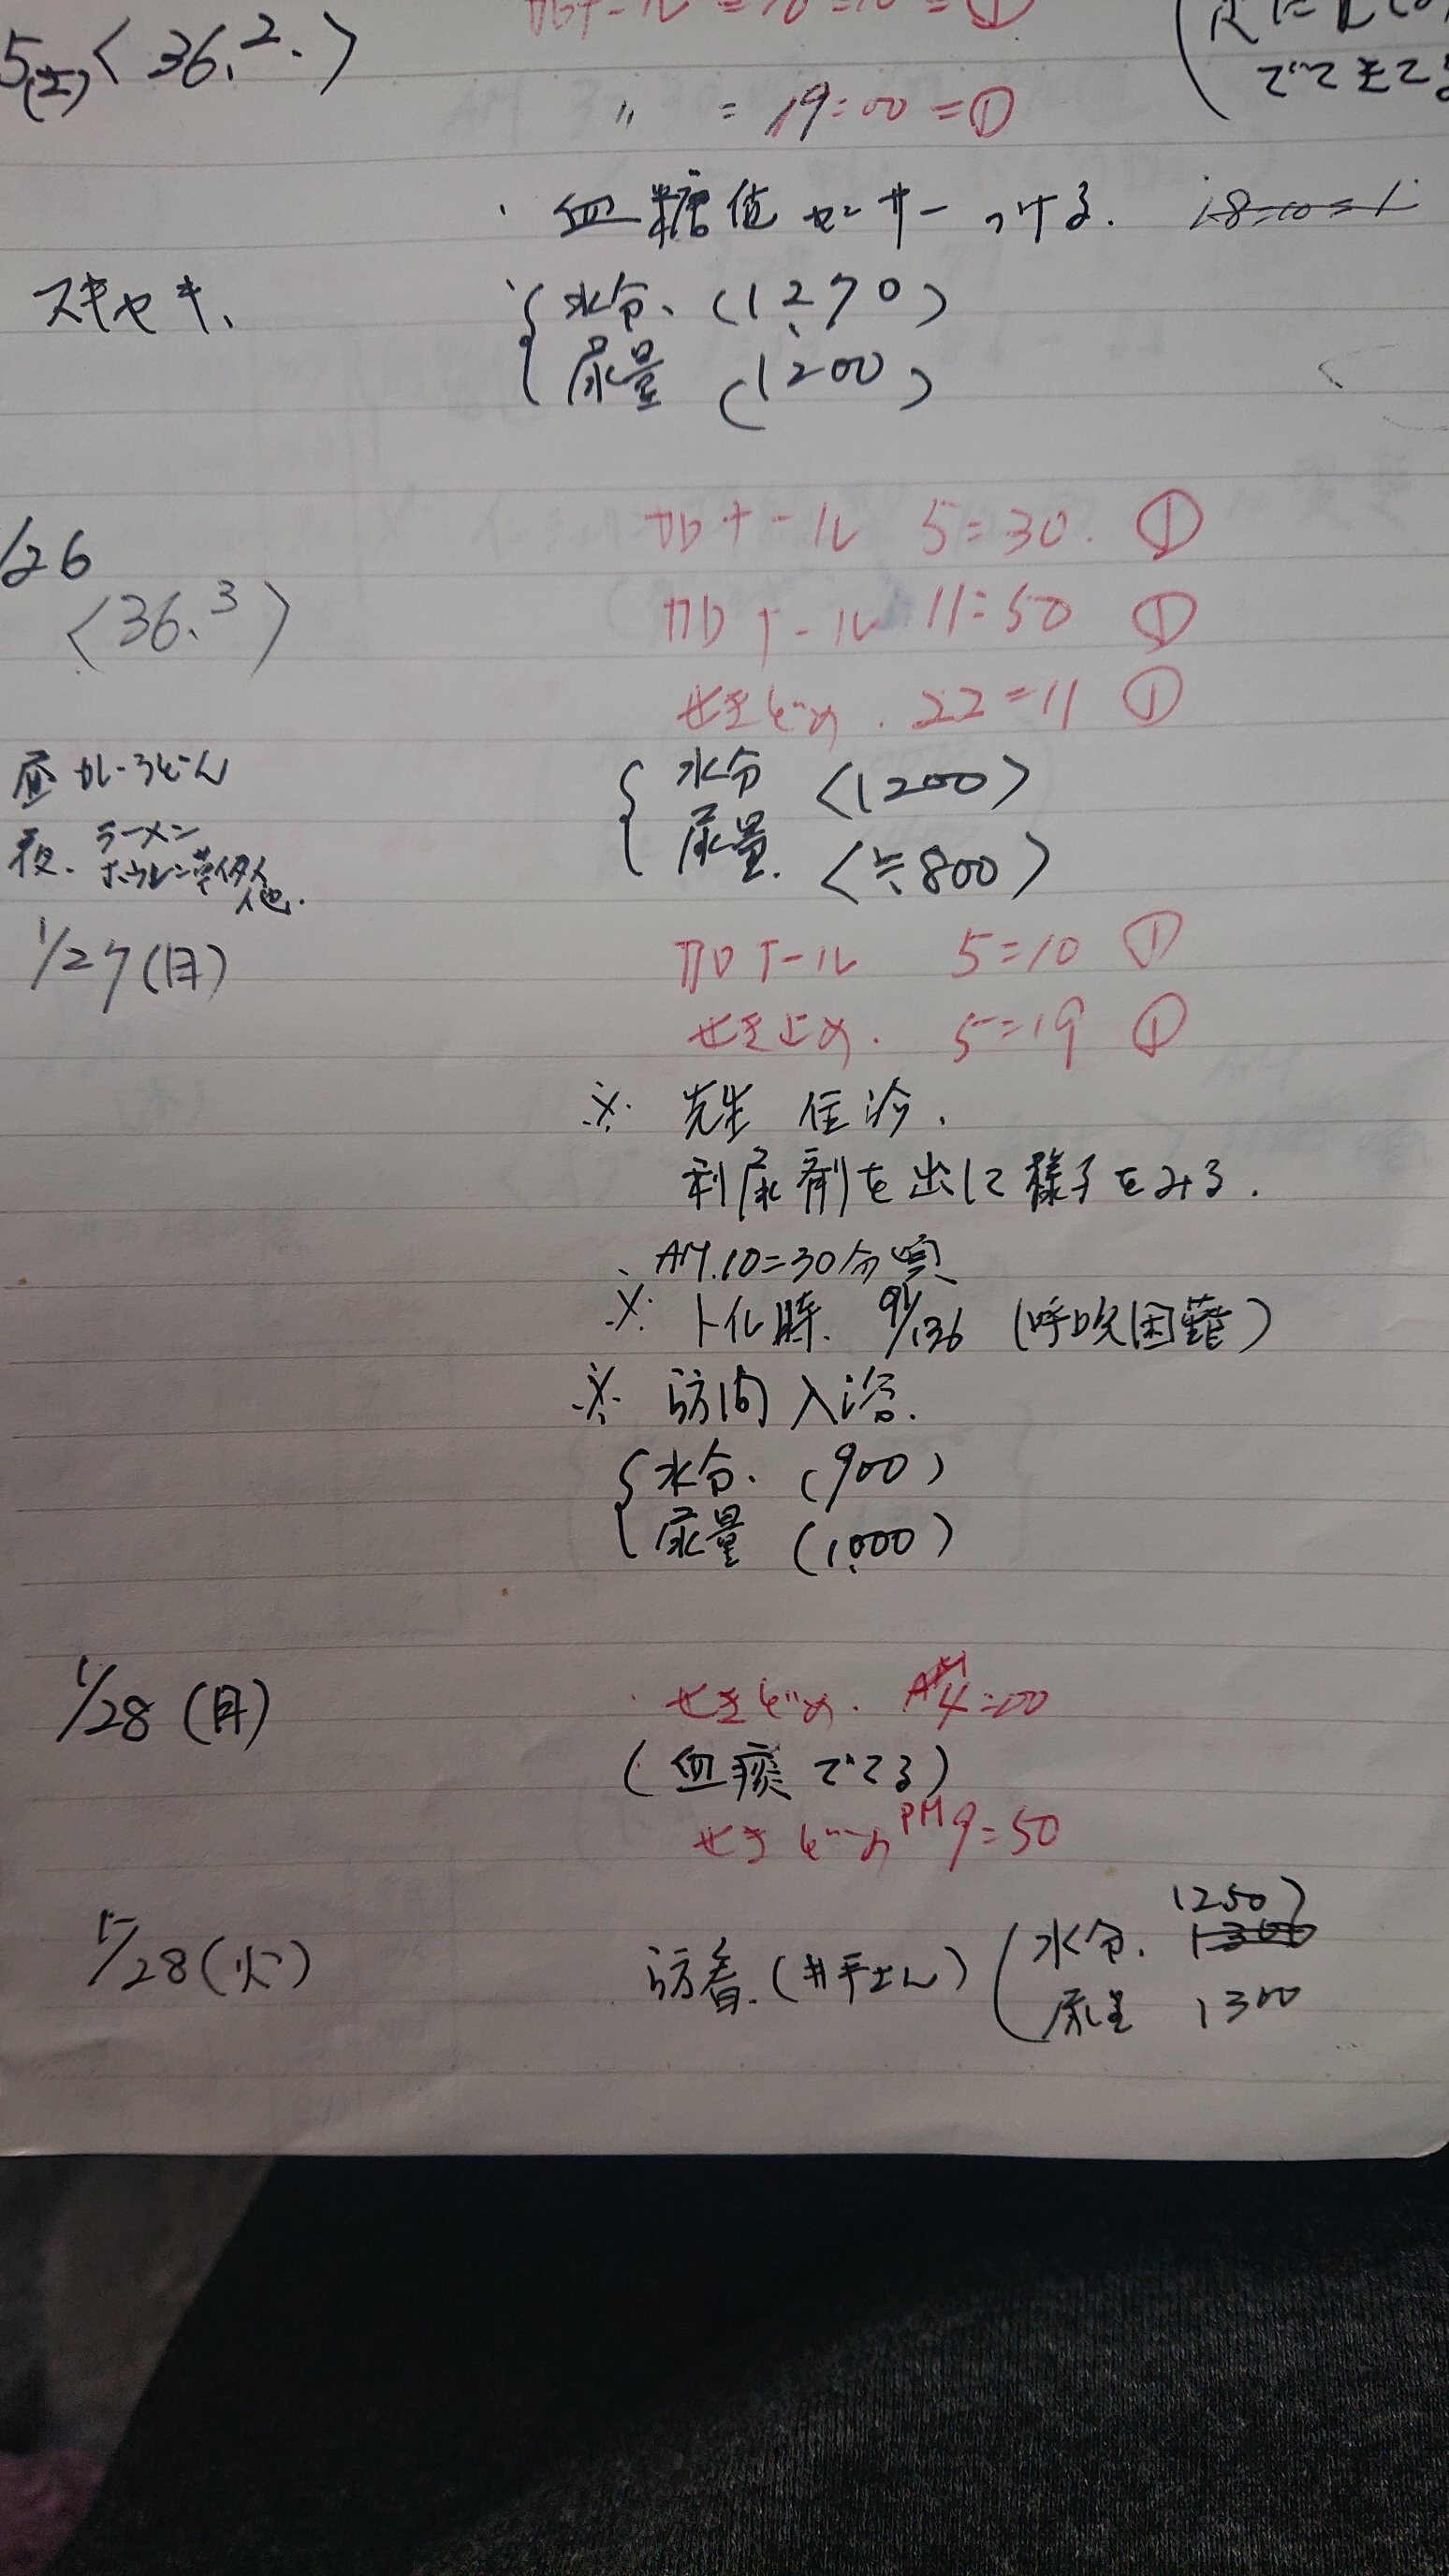 カロナール=18=10=①
(尿に
でてきてる
5(土)〈36.2.〉
〃 =19=00=①
・血糖値センサーつける. 18=10=1
スキヤキ、
{水分、(1,270)
尿量 (1200)
1/26
カロナール 5=30. ①
〈36.3〉
カロナール 11=50 ①
せきどめ. 22=11 ①
昼 カレーうどん
{水分 〈1200〉
夜. ラーメン
尿量. 〈≒800〉
ホウレン草
他.
1/27(月)
カロナール 5=10 ①
せき止め. 5=19 ①
※ 先生 住診.
利尿剤を出して様子をみる.
、AM.10=30分頃
※ トイレ時. 91/136 (呼吸困難)
※ 訪問入浴.
{水分. (900)
尿量 (1,000)
1/28(月)
・せきどめ. AM4=00
(血痰でてる)
せきどめ PM9=50
1/28(火)
訪看.(井手さん)
(水分. 1300 1250)
尿量 1300